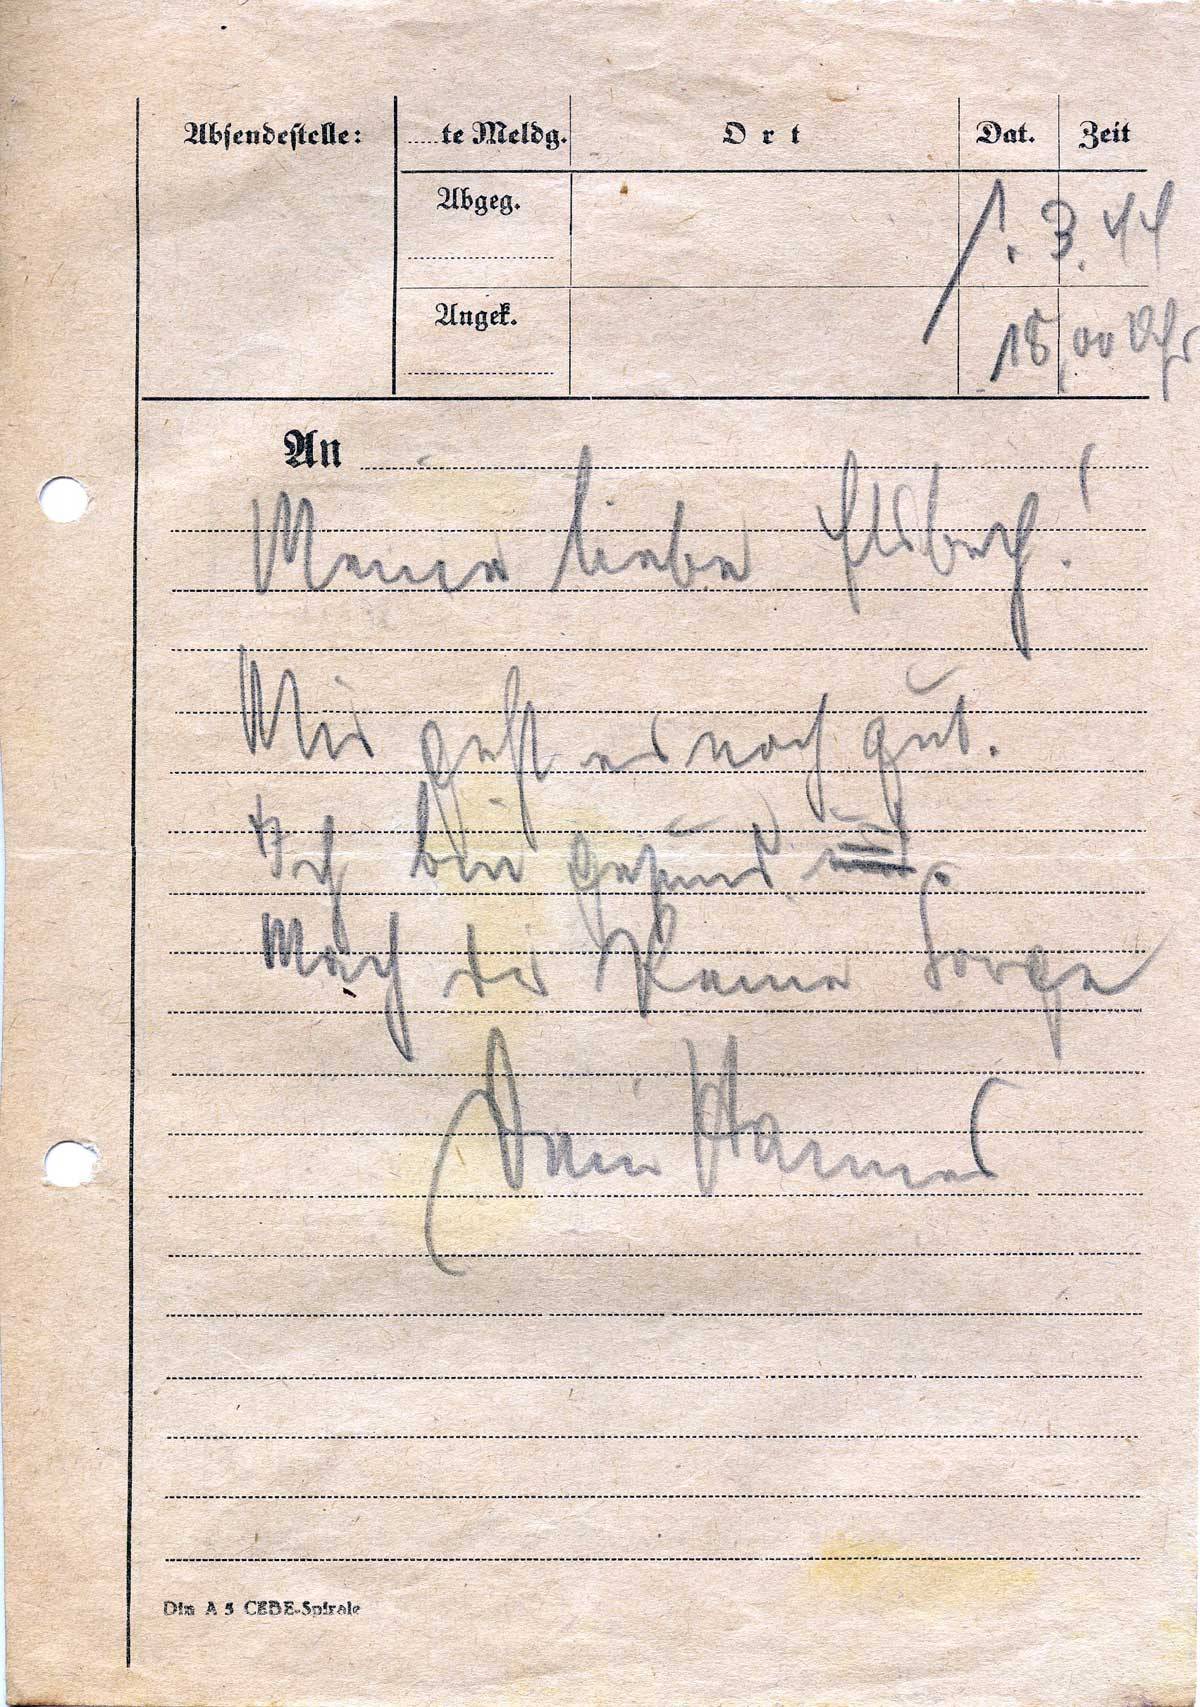 Absendestelle: .....te Meldg. Ort Dat. Zeit
Abgeg. 1. 3. 44
Angek. 18,00 Uhr
An
Meine liebe !
Mir geht es noch gut.
Ich bin gesund
Mach dir keine Sorge
Dein Hannes
Din A 5 CEBE-Spirale